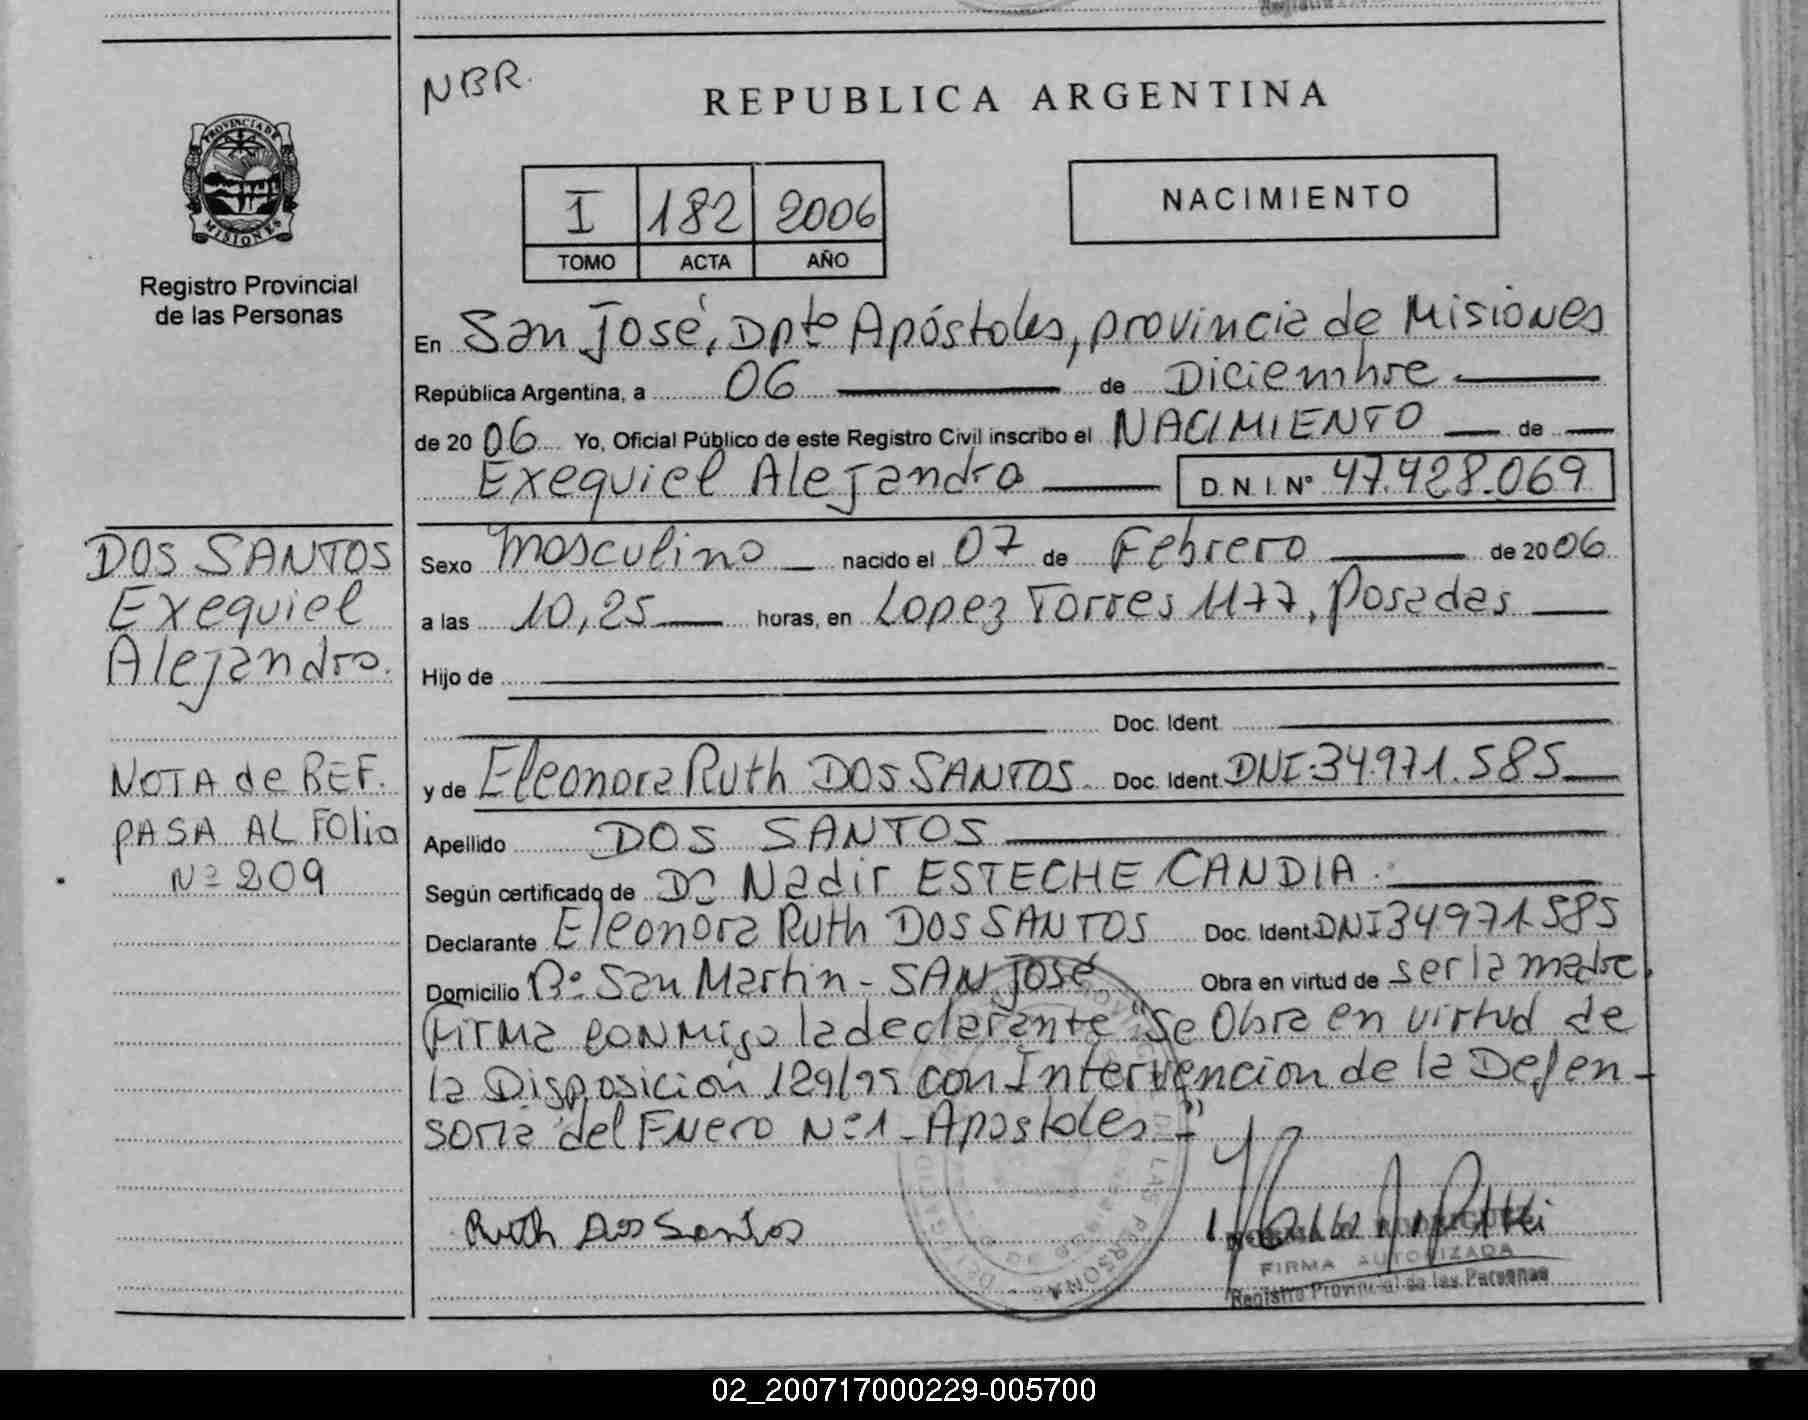 NBR.
REPUBLICA ARGENTINA
PROVINCIA DE
MISIONES
Registro Provincial
de las Personas
I 182 2006
TOMO ACTA AÑO
NACIMIENTO
En San José, Dpto Apóstoles, provincia de Misiones
República Argentina, a 06 de Diciembre
de 20 06 Yo, Oficial Público de este Registro Civil inscribo el NACIMIENTO de
Exequiel Alejandro D.N.I. Nº 47.428.069
DOS SANTOS
Exequiel
Alejandro.
Sexo Masculino nacido el 07 de Febrero de 20 06
a las 10,25 horas, en Lopez Torres 1177, Posadas
Hijo de
Doc. Ident.
NOTA de REF.
PASA AL Folio
Nº 209
y de Eleonora Ruth DOS SANTOS Doc. Ident. DNI-34.971.585
Apellido DOS SANTOS
Según certificado de Dº Nadir ESTECHE CANDIA.
Declarante Eleonora Ruth DOS SANTOS Doc. Ident. DNI 34.971.585
Domicilio Bº San Martin - SAN José Obra en virtud de ser la madre.
Firma conmigo la declarante "Se Obra en virtud de
la Disposición 129/95 con Intervencion de la Defen-
soria del Fuero Nº 1 - Apostoles -"
Ruth Dos Santos
FIRMA AUTORIZADA
Registro Provincial de las Personas
02_200717000229-005700